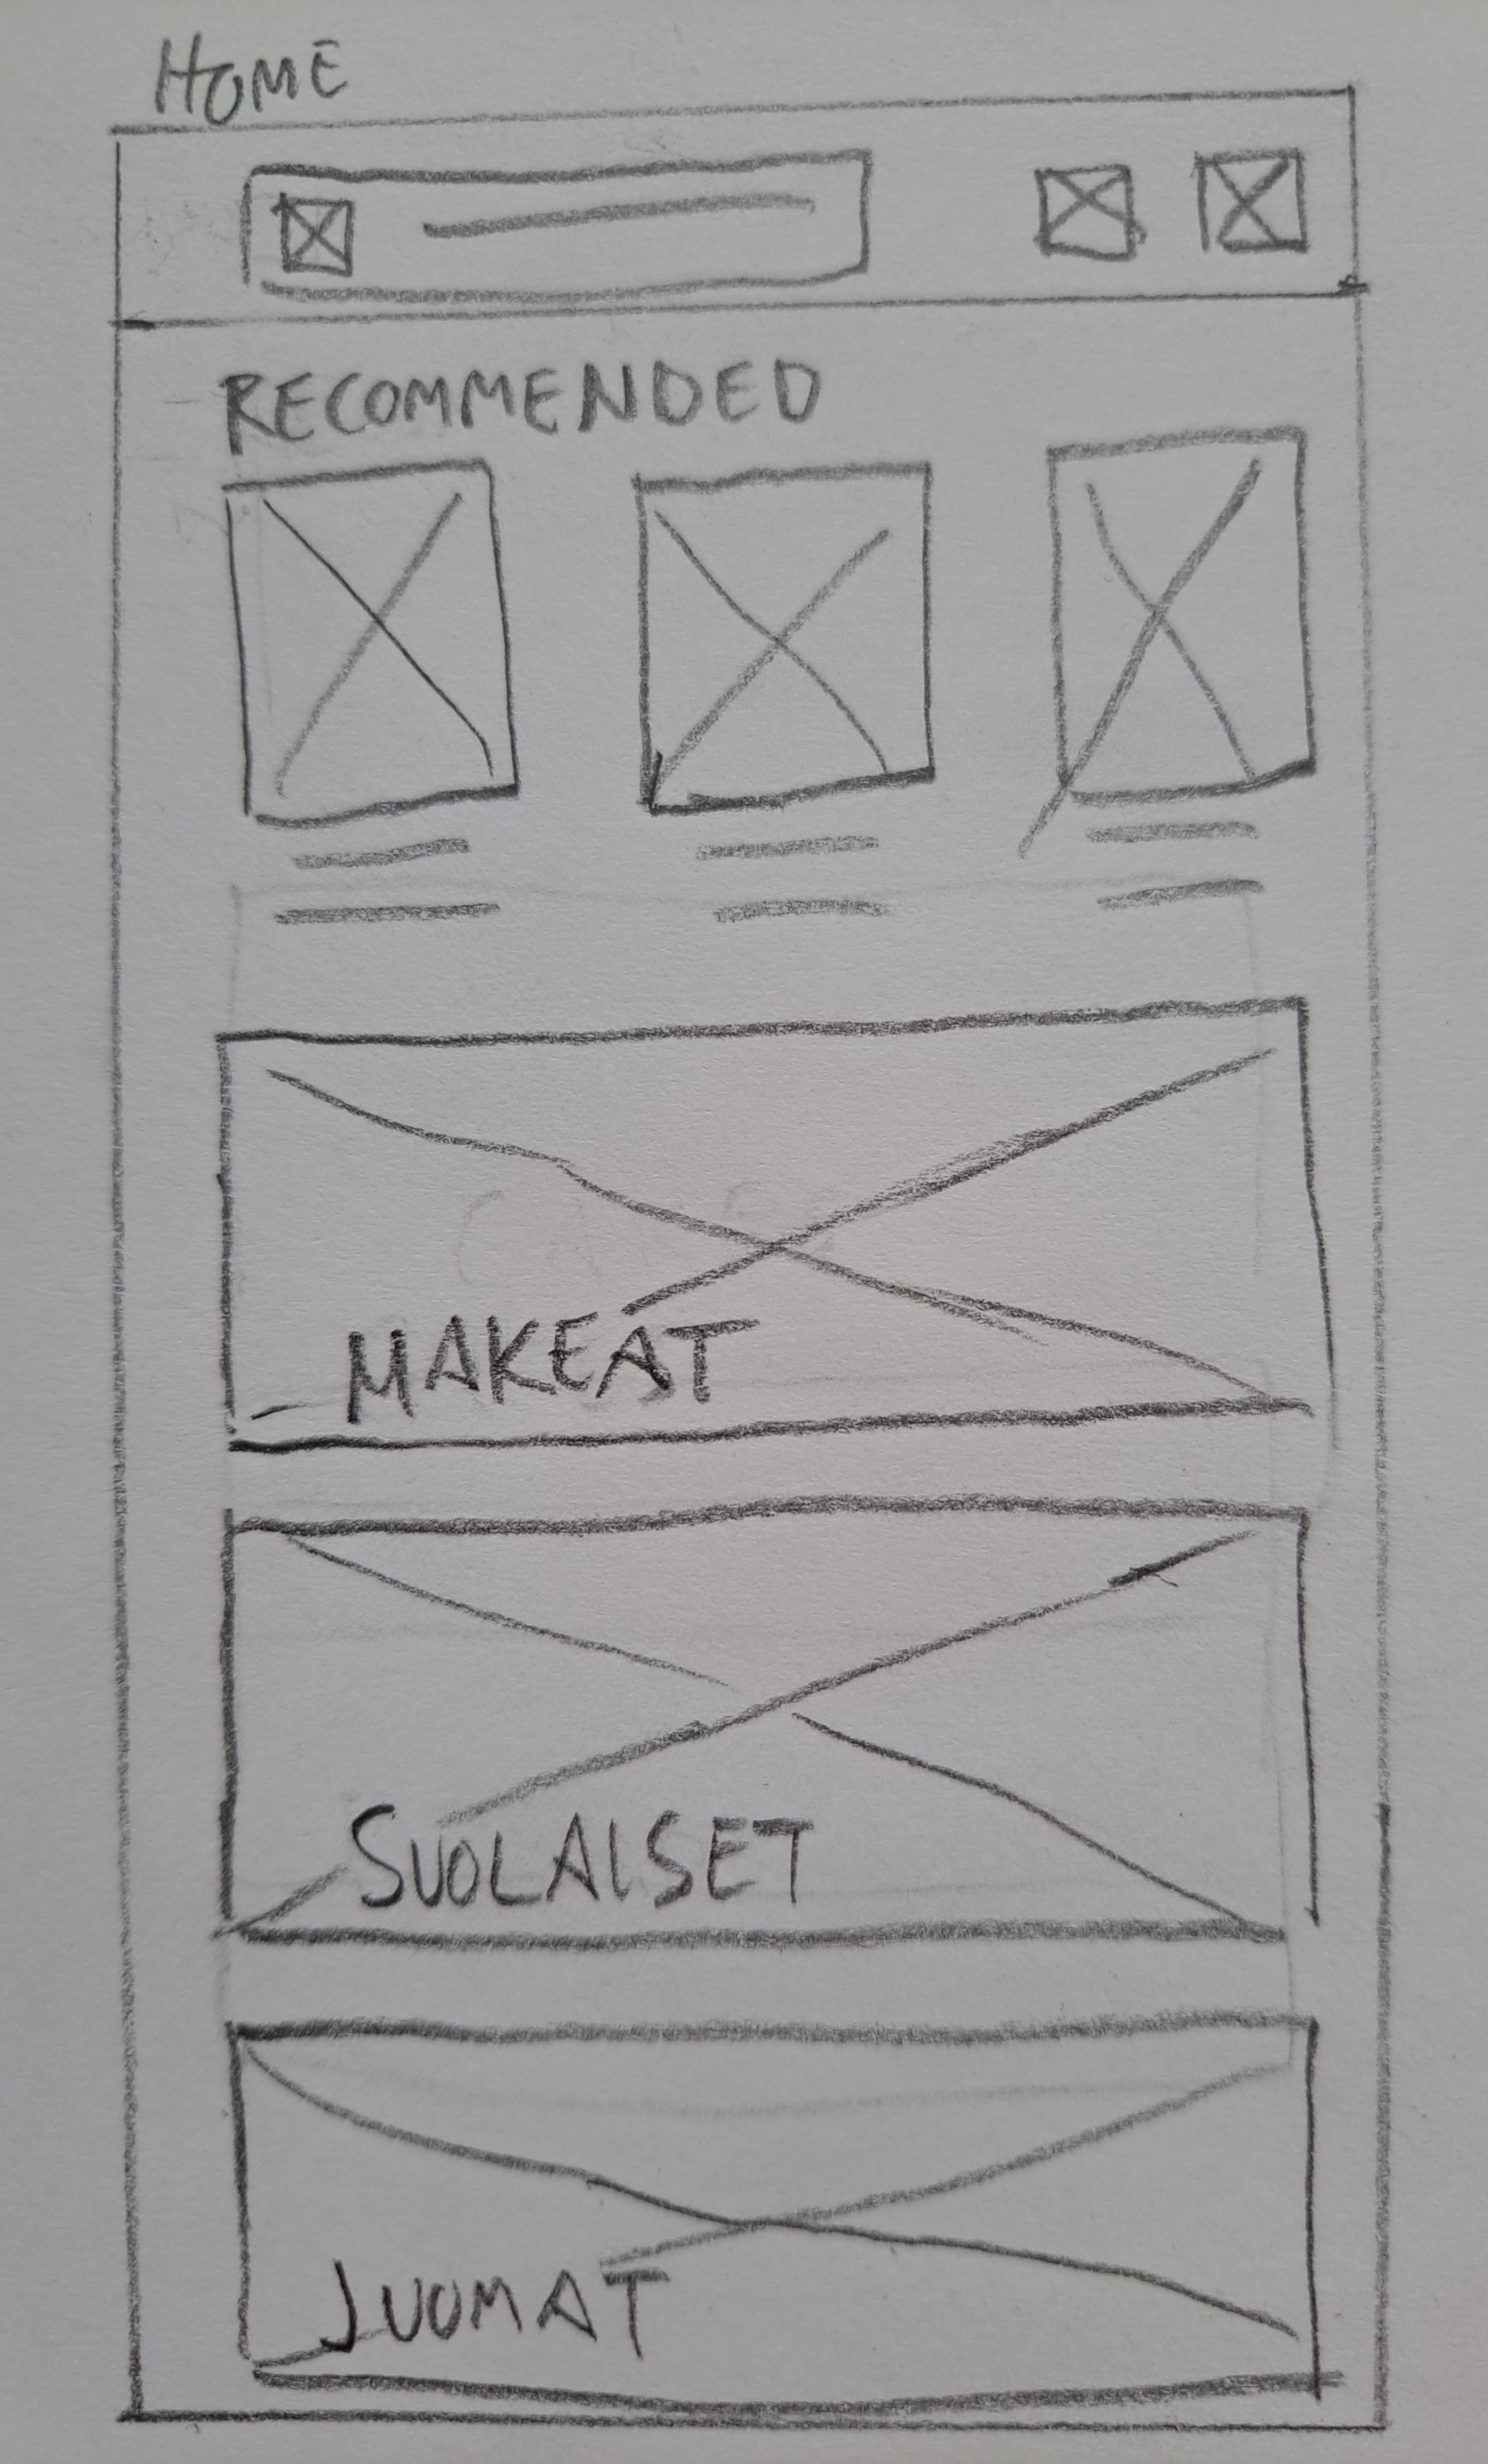 HOME
RECOMMENDED
MAKEAT
SUOLAISET
JUOMAT